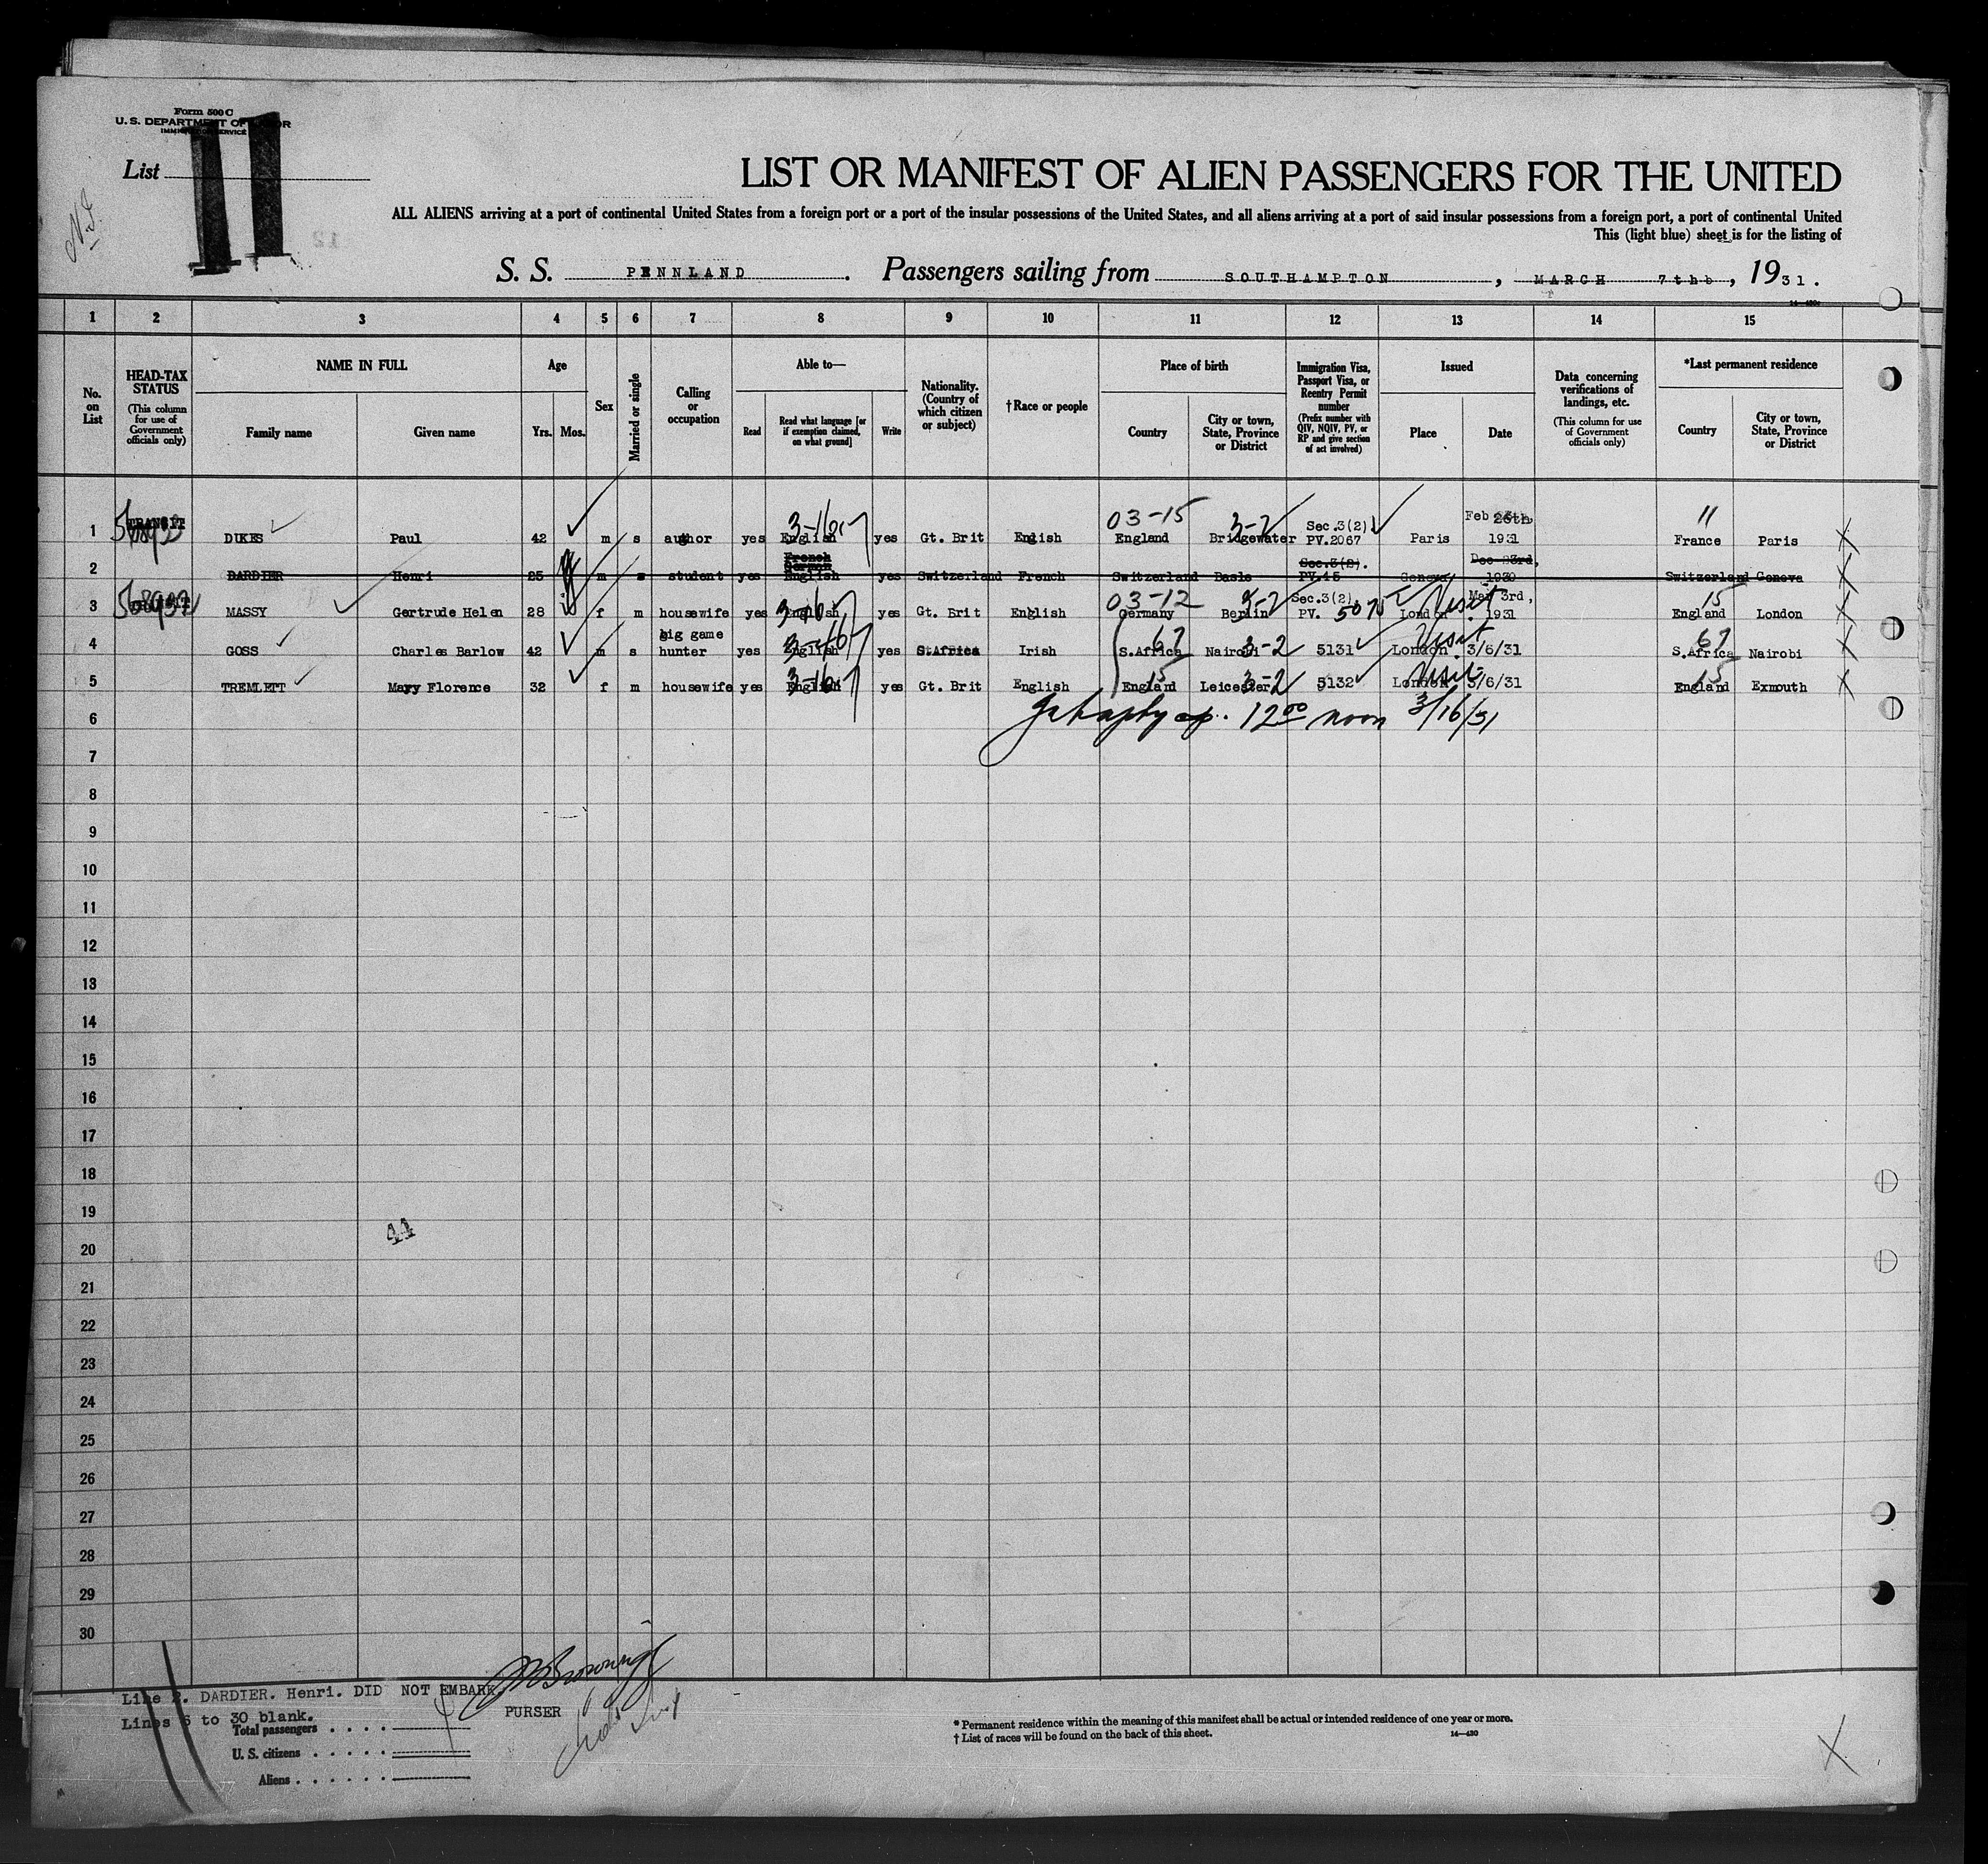 Form 500 C
U. S. DEPARTMENT OF LABOR
IMMIGRATION SERVICE
List 11
LIST OR MANIFEST OF ALIEN PASSENGERS FOR THE UNITED
ALL ALIENS arriving at a port of continental United States from a foreign port or a port of the insular possessions of the United States, and all aliens arriving at a port of said insular possessions from a foreign port, a port of continental United
This (light blue) sheet is for the listing of
S. S. PENNLAND. Passengers sailing from SOUTHAMPTON, MARCH 7thb, 1931.
1 2 3 4 5 6 7 8 9 10 11 12 13 14 15
No. on List
HEAD-TAX STATUS (This column for use of Government officials only)
NAME IN FULL Family name Given name
Age Yrs. Mos.
Sex
Married or single
Calling or occupation
Able to— Read Read what language [or if exemption claimed, on what ground] Write
Nationality. (Country of which citizen or subject)
†Race or people
Place of birth Country City or town, State, Province or District
Immigration Visa, Passport Visa, or Reentry Permit number (Prefix number with QIV, NQIV, PV, or RP and give section of act involved)
Issued Place Date
Data concerning verifications of landings, etc. (This column for use of Government officials only)
*Last permanent residence Country City or town, State, Province or District
TRANSIT 03-15 3-2 Sec.3(2) Feb 26th, 11
1 DUKES Paul 42 m s author yes English yes Gt. Brit English England Bridgewater PV.2067 Paris 1931 France Paris
French German Sec.3(2). Dec 23rd,
2 DARDIER Henri 25 m s student yes English yes Switzerland French Switzerland Basle PV.15 Geneva 1930 Switzerland Geneva
03-12 3-2 Sec.3(2) Visit Mar 3rd, 15
3 MASSY Gertrude Helen 28 f m housewife yes English yes Gt. Brit English Germany Berlin PV. 5075 London 1931 England London
big game 67 3-2 Visit 67
4 GOSS Charles Barlow 42 m s hunter yes English yes S.Africa Irish S.Africa Nairobi 5131 London 3/6/31 S.Africa Nairobi
15 3-2 Visit 15
5 TREMLETT Mary Florence 32 f m housewife yes English yes Gt. Brit English England Leicester 5132 London 3/6/31 England Exmouth
6 12 00 noon 3/16/31
7
8
9
10
11
12
13
14
15
16
17
18
19
44
20
21
22
23
24
25
26
27
28
29
30
Line 2. DARDIER. Henri. DID NOT EMBARK.
Lines 6 to 30 blank.
PURSER
Total passengers
U. S. citizens
Aliens
* Permanent residence within the meaning of this manifest shall be actual or intended residence of one year or more.
† List of races will be found on the back of this sheet.
14—430